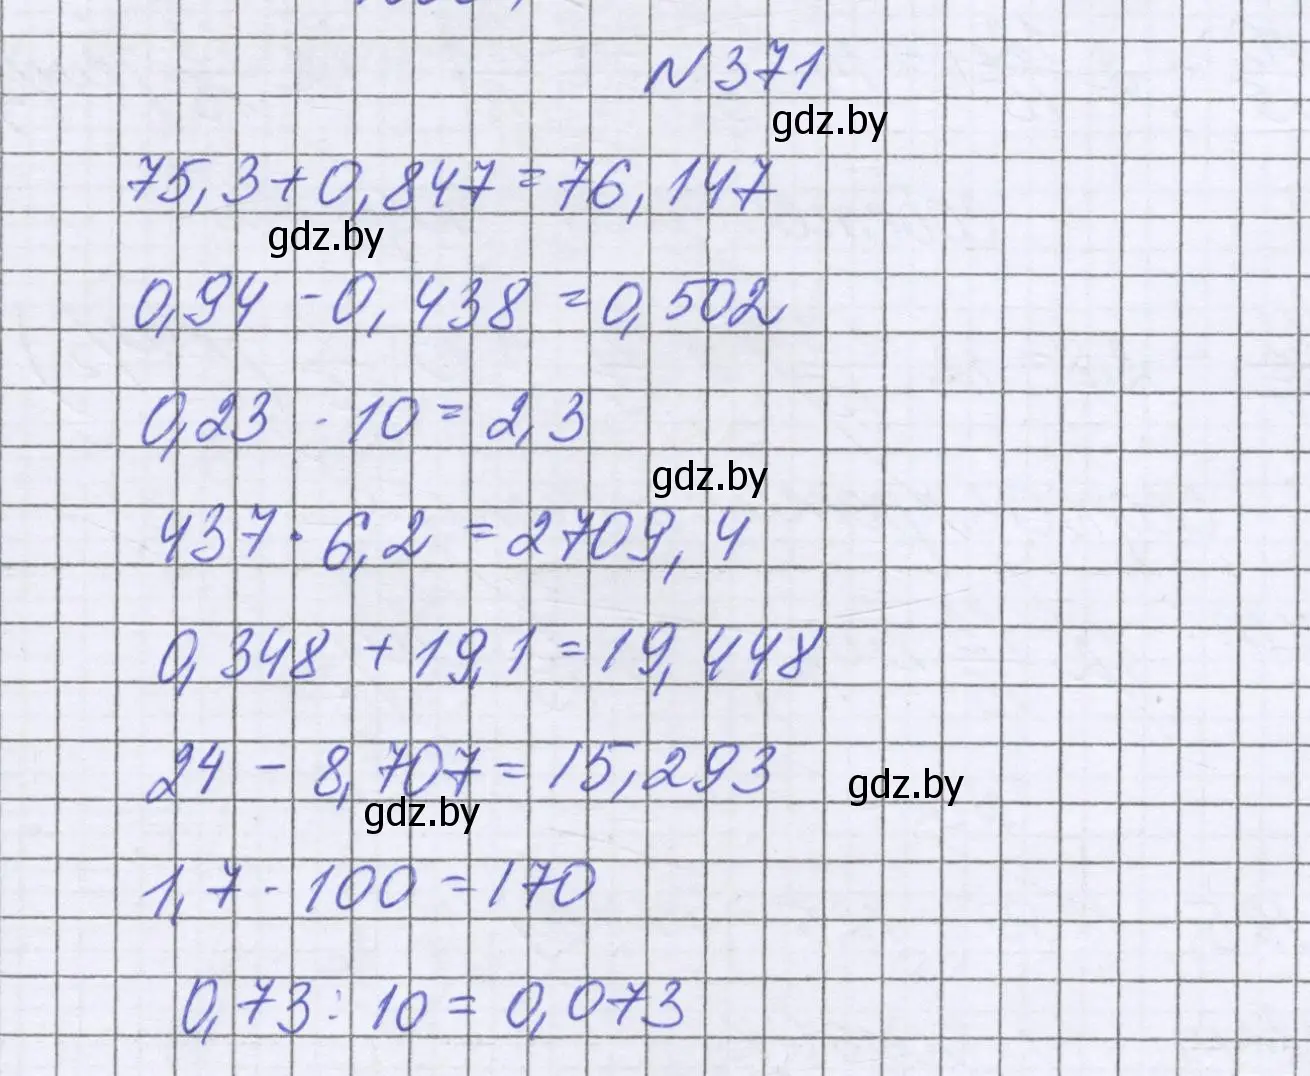 N 371
gdz.by
75,3 + 0,847 = 76,147
gdz.by
0,94 - 0,438 = 0,502
0,23 · 10 = 2,3
gdz.by
437 · 6,2 = 2709,4
0,348 + 19,1 = 19,448
24 - 8,707 = 15,293
gdz.by
gdz.by
1,7 · 100 = 170
0,73 : 10 = 0,073